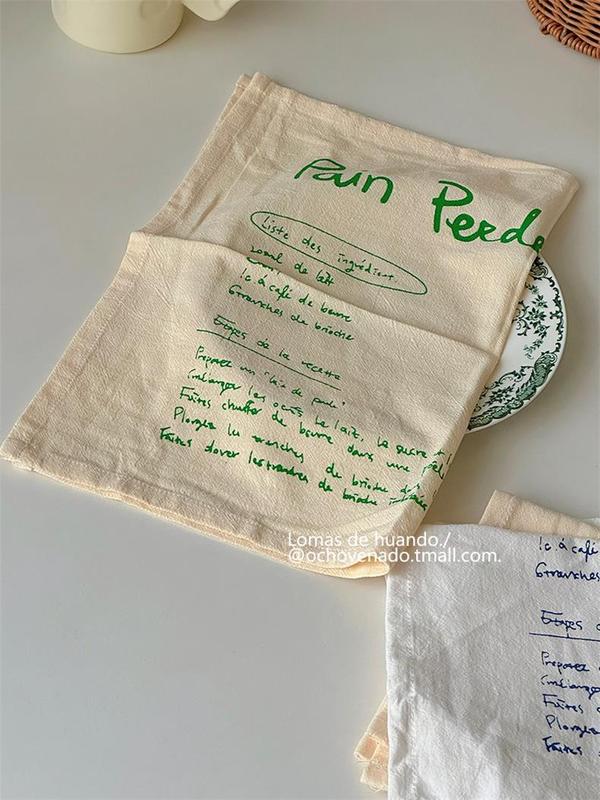 Pain Perdu
Liste des ingrédients
de lait
1c. à café de beurre
6 tranches de brioche
Etapes de la recette
Préparez un
les oeufs le lait, le sucre
Faites chauffer de beurre dans une
Plongez de brioche
Faites dorer les tranches de brioche
Lomas de huando./
@ochovenado.tmall.com.
1c. à café
6 tranches
Etapes
Préparez
Faites
Plongez
Faites